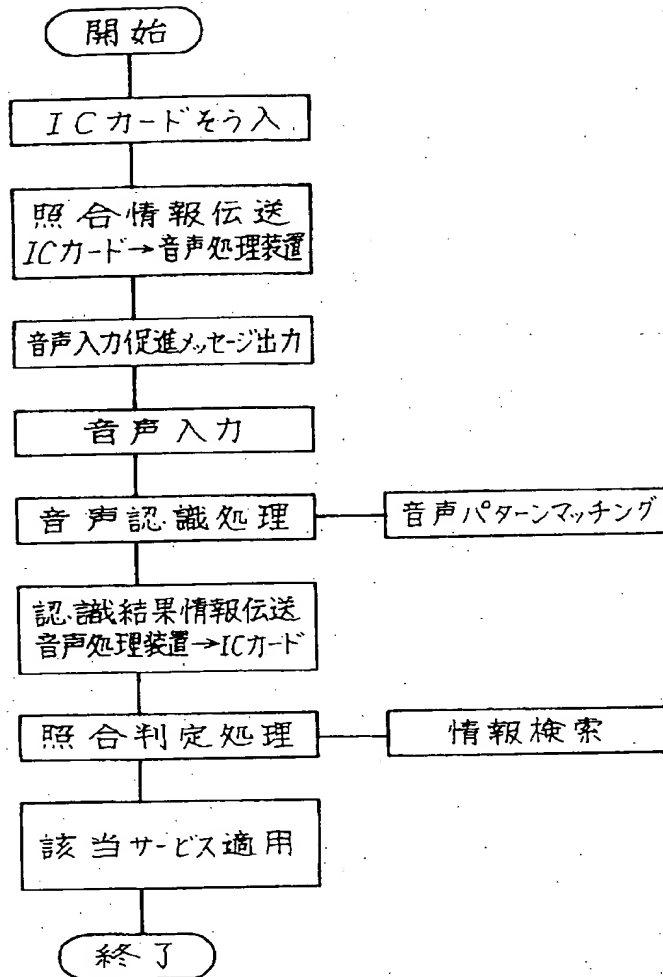 開始
ICカードそう入
照合情報伝送
ICカード→音声処理装置
音声入力促進メッセージ出力
音声入力
音声認識処理
音声パターンマッチング
認識結果情報伝送
音声処理装置→ICカード
照合判定処理
情報検索
該当サービス適用
終了